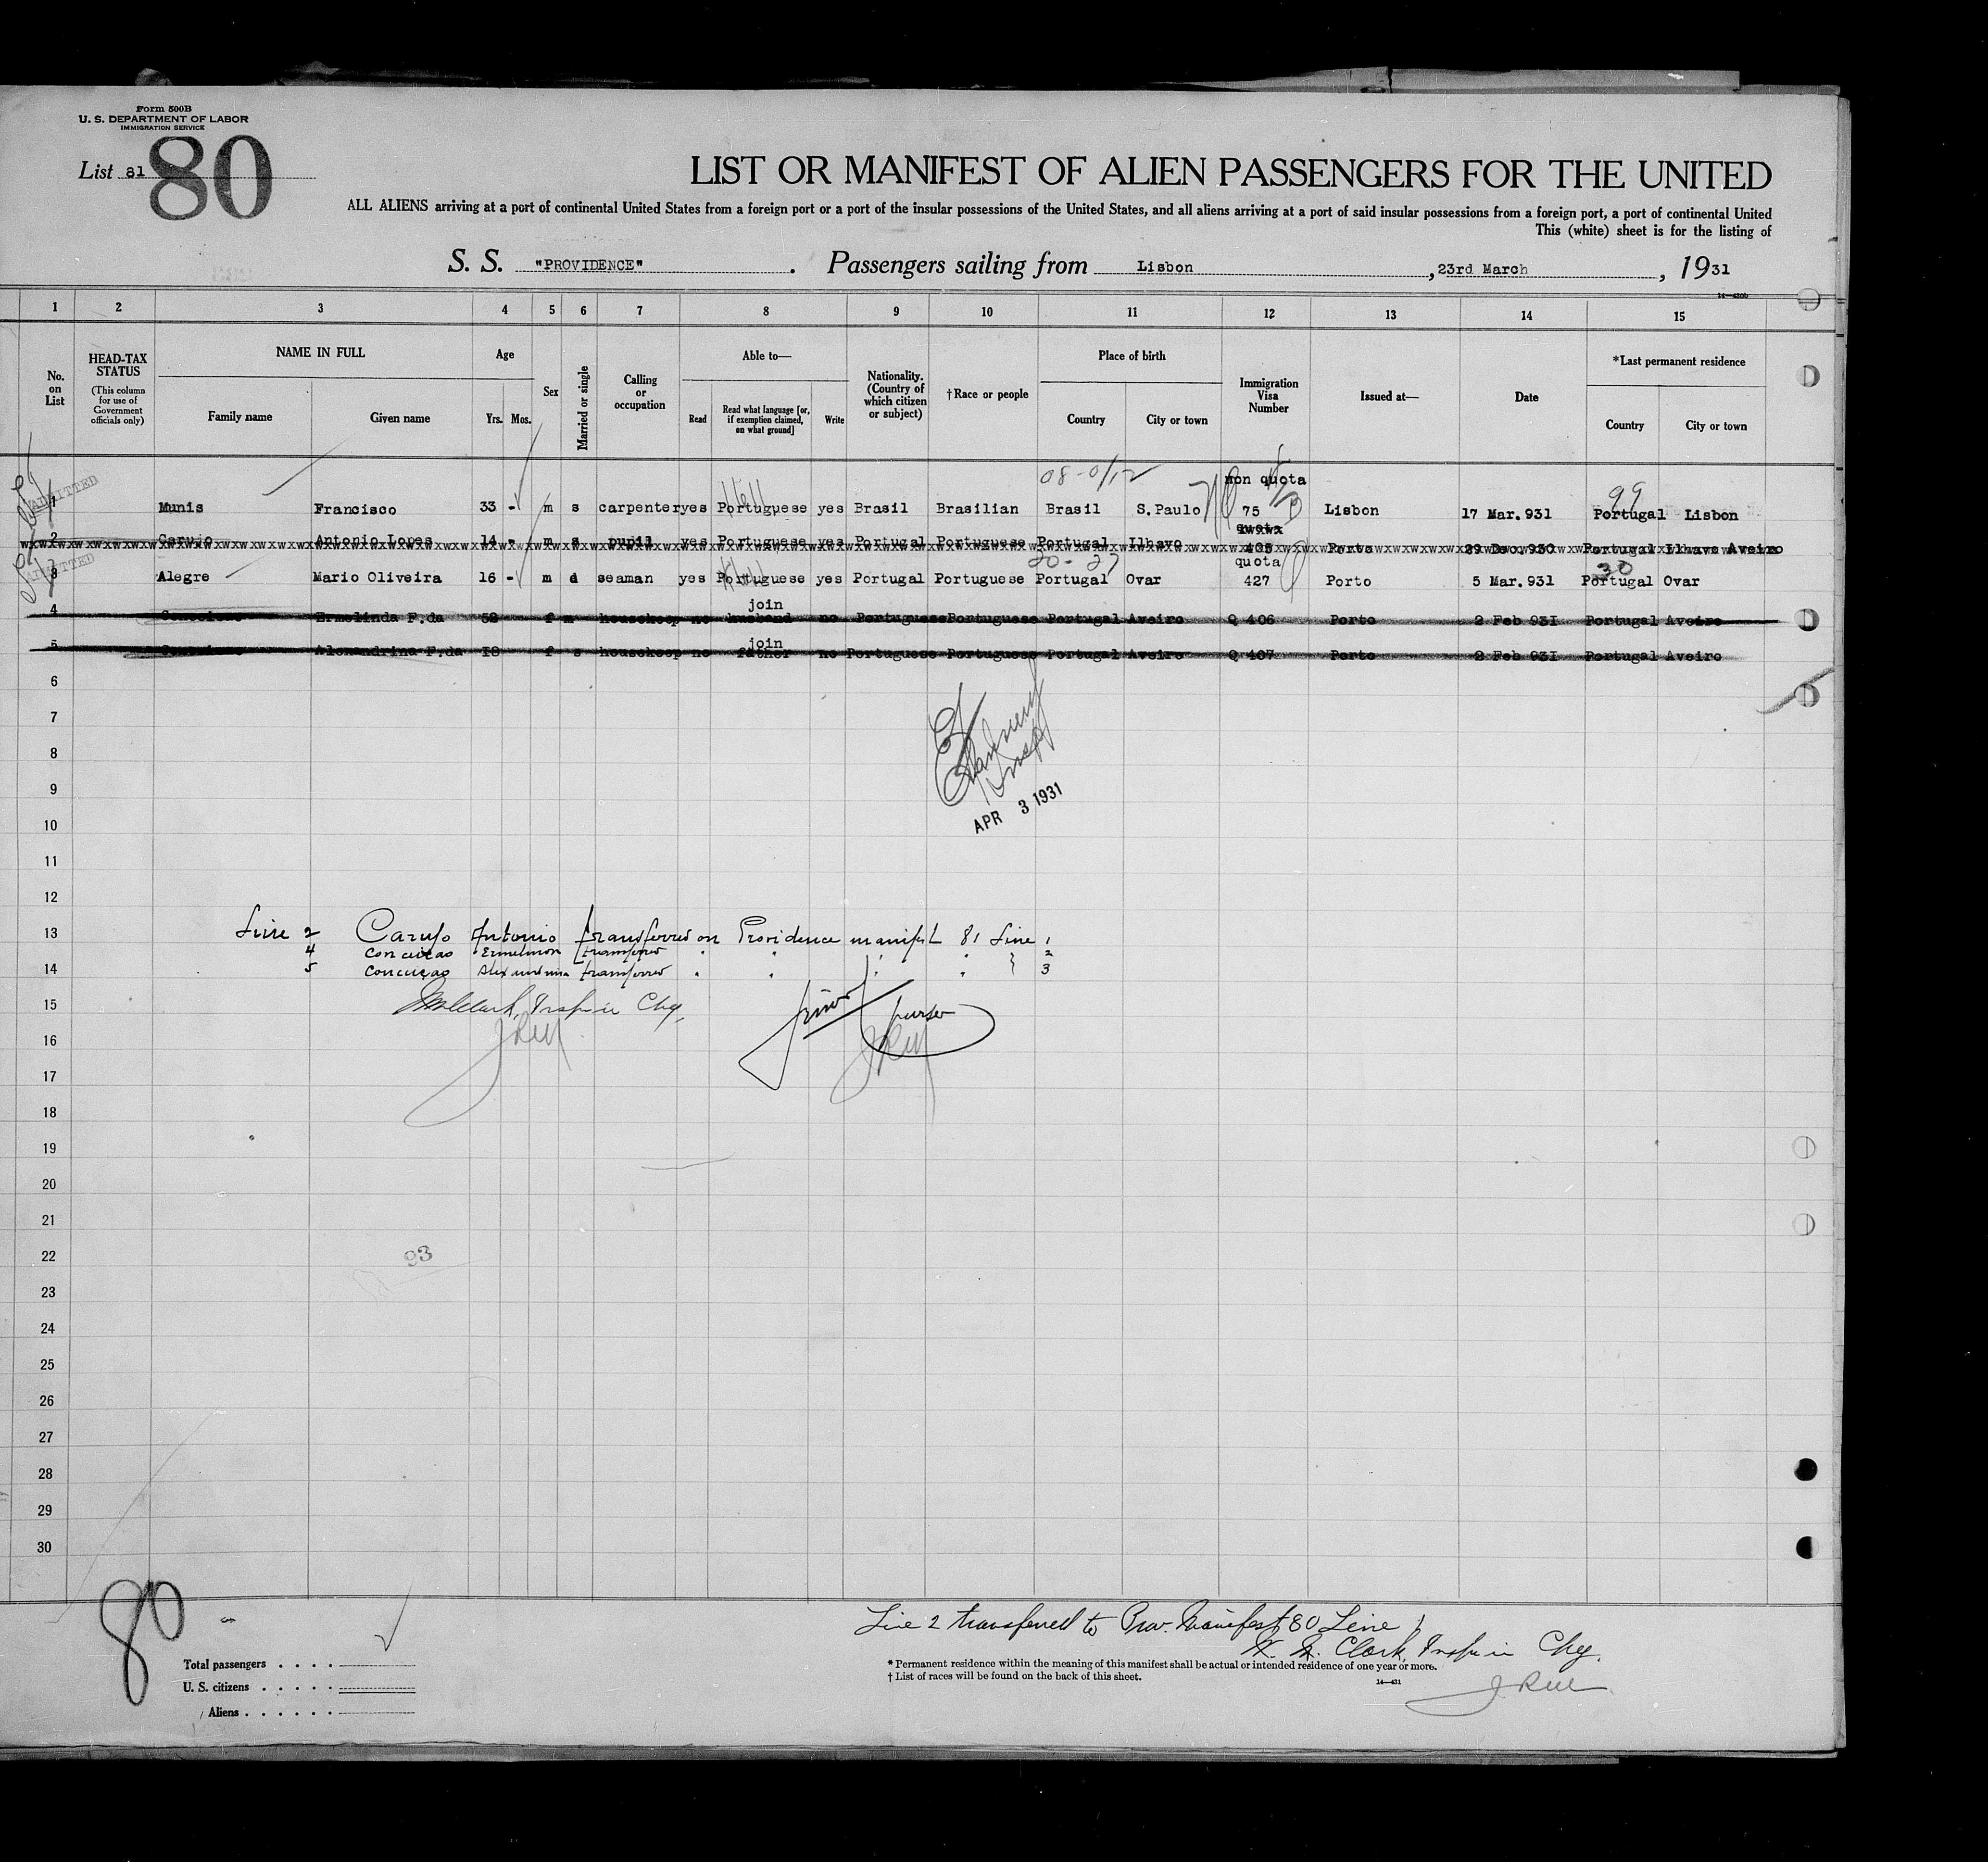 Form 500B
U. S. DEPARTMENT OF LABOR
IMMIGRATION SERVICE
List 81
80
LIST OR MANIFEST OF ALIEN PASSENGERS FOR THE UNITED
ALL ALIENS arriving at a port of continental United States from a foreign port or a port of the insular possessions of the United States, and all aliens arriving at a port of said insular possessions from a foreign port, a port of continental United
This (white) sheet is for the listing of
S. S. "PROVIDENCE". Passengers sailing from Lisbon, 23rd March, 1931
1 2 3 4 5 6 7 8 9 10 11 12 13 14 15
No. on List
HEAD-TAX STATUS
(This column for use of Government officials only)
NAME IN FULL
Family name Given name
Age
Yrs. Mos.
Sex
Married or single
Calling or occupation
Able to—
Read Read what language [or, if exemption claimed, on what ground] Write
Nationality. (Country of which citizen or subject)
†Race or people
Place of birth
Country City or town
Immigration Visa Number
Issued at—
Date
*Last permanent residence
Country City or town
ADMITTED
08-0/12
non quota
99
1 Munis Francisco 33 - m s carpenter yes Portuguese yes Brasil Brasilian Brasil S.Paulo 75 Lisbon 17 Mar.931 Portugal Lisbon
quota
2 Carujo Antonio Lopes 14 - m s pupil yes Portuguese yes Portugal Portuguese Portugal Ilhavo 405 Porto 29 Dec.930 Portugal Ilhavo Aveiro
ADMITTED
quota
30
3 Alegre Mario Oliveira 16 - m s seaman yes Portuguese yes Portugal Portuguese Portugal Ovar 427 Porto 5 Mar.931 Portugal Ovar
join
4 Ermelinda F.da 52 f m housekeep no husband no Portuguese Portuguese Portugal Aveiro Q 406 Porto 2 Feb 931 Portugal Aveiro
join
5 Alexandrina F.da 18 f s housekeep no father no Portuguese Portuguese Portugal Aveiro Q 407 Porto 2 Feb 931 Portugal Aveiro
6
7
8
9
APR 3 1931
10
11
12
13 Line 2 Carujo Antonio transferred on Providence manifest 81 Line 1
4 Conceicao transferred " " " " 2
14 5 Conceicao Alexandrina transferred " " " " 3
15 Clark, Insp in Chg. purser
16
17
18
19
20
21
22
93
23
24
25
26
27
28
29
30
80
Total passengers
U. S. citizens
Aliens
Line 2 transferred to Prov. Manifest 80 Line 1
Clark, Insp in Chg.
* Permanent residence within the meaning of this manifest shall be actual or intended residence of one year or more.
† List of races will be found on the back of this sheet.
14—431